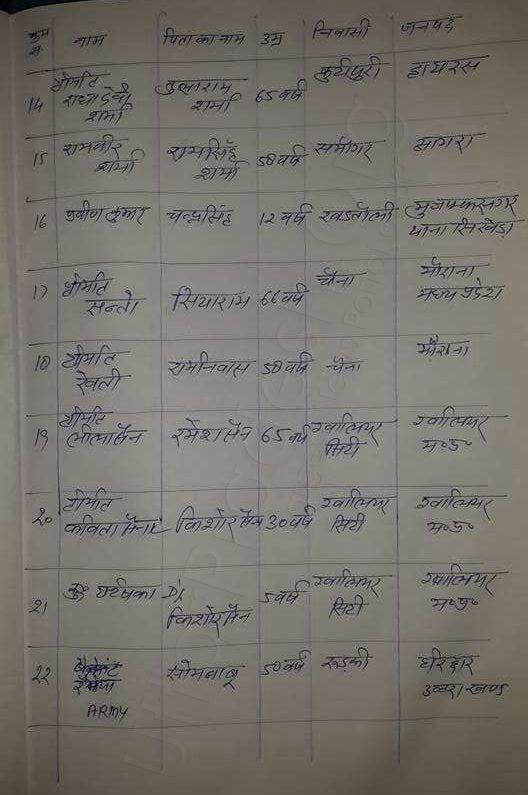 क्रम
स.
नाम
पिता का नाम
उम्र
निवासी
जनपद
14
श्रीमति
राधा देवी
शर्मा
तुलाराम
शर्मा
65 वर्ष
हाथरस
15
रामवीर
शर्मा
रामसिंह
शर्मा
50 वर्ष
आगरा
16
प्रवीण कुमार
चन्द्रसिंह
12 वर्ष
मुजफ्फरनगर
थाना सिखेड़ा
17
श्रीमति
सन्तो
सियाराम
66 वर्ष
चैना
मौराना
मध्य प्रदेश
18
श्रीमति
रेवती
रामनिवास
50 वर्ष
चैना
मौराना
19
श्रीमति
लीला सैन
रमेश सैन
65 वर्ष
ग्वालियर
सिटी
ग्वालियर
म०प्र०
20
श्रीमति
कविता सैन
किशोर सैन
30 वर्ष
ग्वालियर
सिटी
ग्वालियर
म०प्र०
21
कु०
D/
किशोर सैन
5 वर्ष
ग्वालियर
सिटी
ग्वालियर
म०प्र०
22
ARMY
सोमबाबू
50 वर्ष
रुड़की
हरिद्वार
उत्तराखण्ड